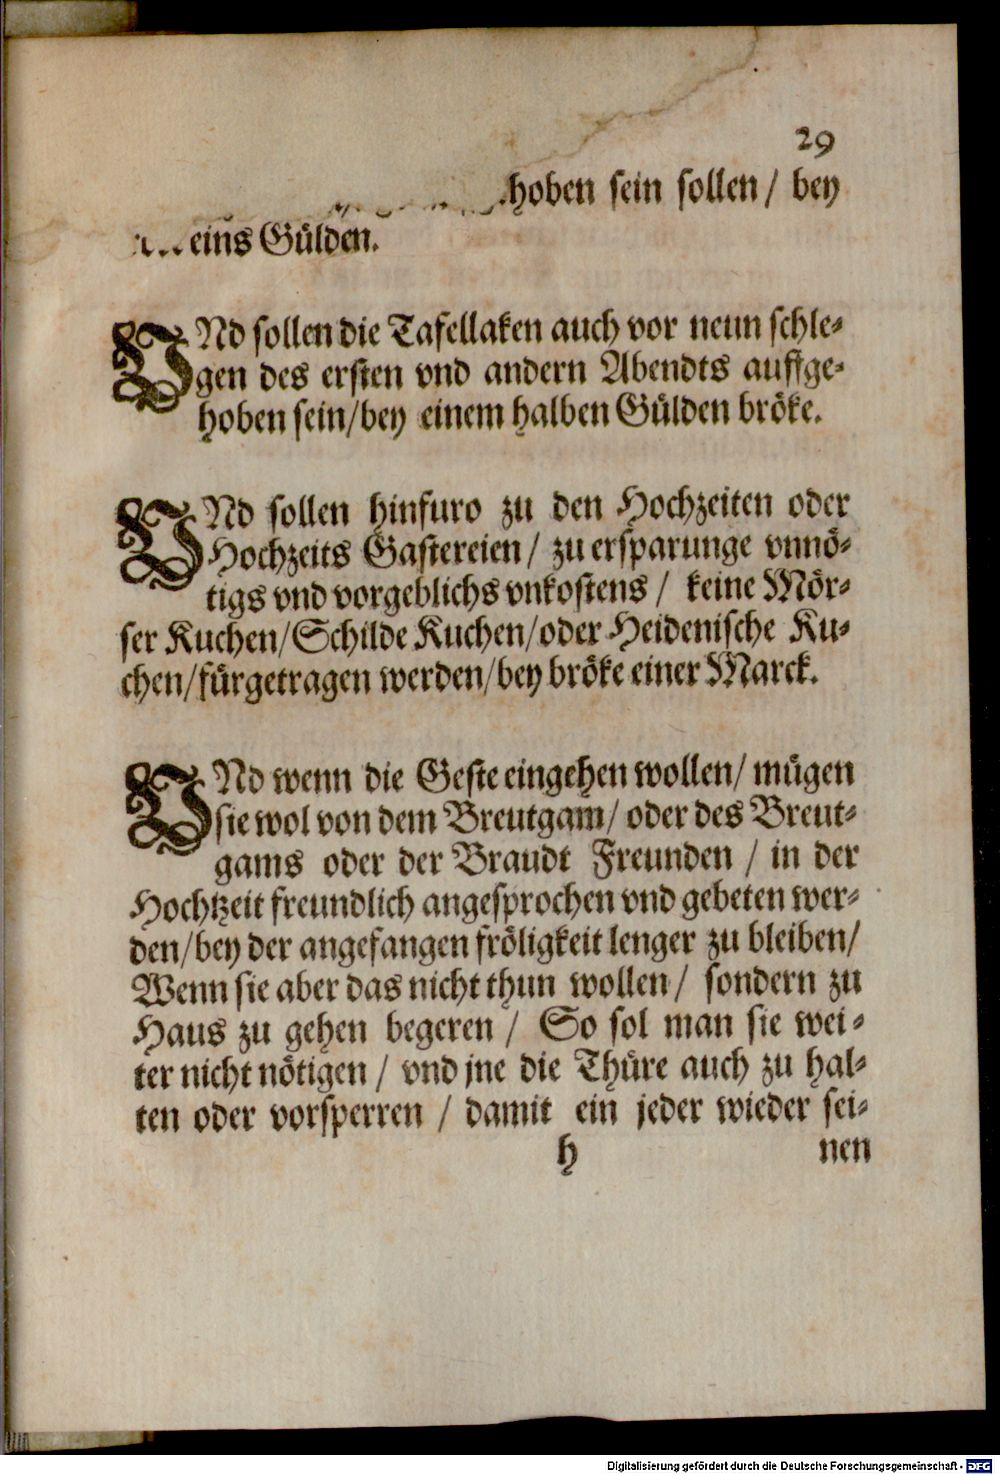 29
hoben sein sollen / bey
eins Gülden.
VNd sollen die Tafellaken auch vor neun schle-
gen des ersten vnd andern Abendts auffge-
hoben sein/bey einem halben Gülden bröke.
VNd sollen hinfuro zu den Hochzeiten oder
Hochzeits Gastereien / zu ersparunge vnnö-
tigs vnd vorgeblichs vnkostens / keine Mör-
ser Kuchen/Schilde Kuchen/oder Heidenische Ku-
chen/fürgetragen werden/bey bröke einer Marck.
VNd wenn die Geste eingehen wollen/ mügen
sie wol von dem Breutgam/ oder des Breut-
gams oder der Braudt Freunden / in der
Hochtzeit freundlich angesprochen vnd gebeten wer-
den/bey der angefangen fröligkeit lenger zu bleiben/
Wenn sie aber das nicht thun wollen / sondern zu
Haus zu gehen begeren / So sol man sie wei-
ter nicht nötigen / vnd jne die Thüre auch zu hal-
ten oder vorsperren / damit ein jeder wieder sei-
h nen
Digitalisierung gefördert durch die Deutsche Forschungsgemeinschaft - DFG